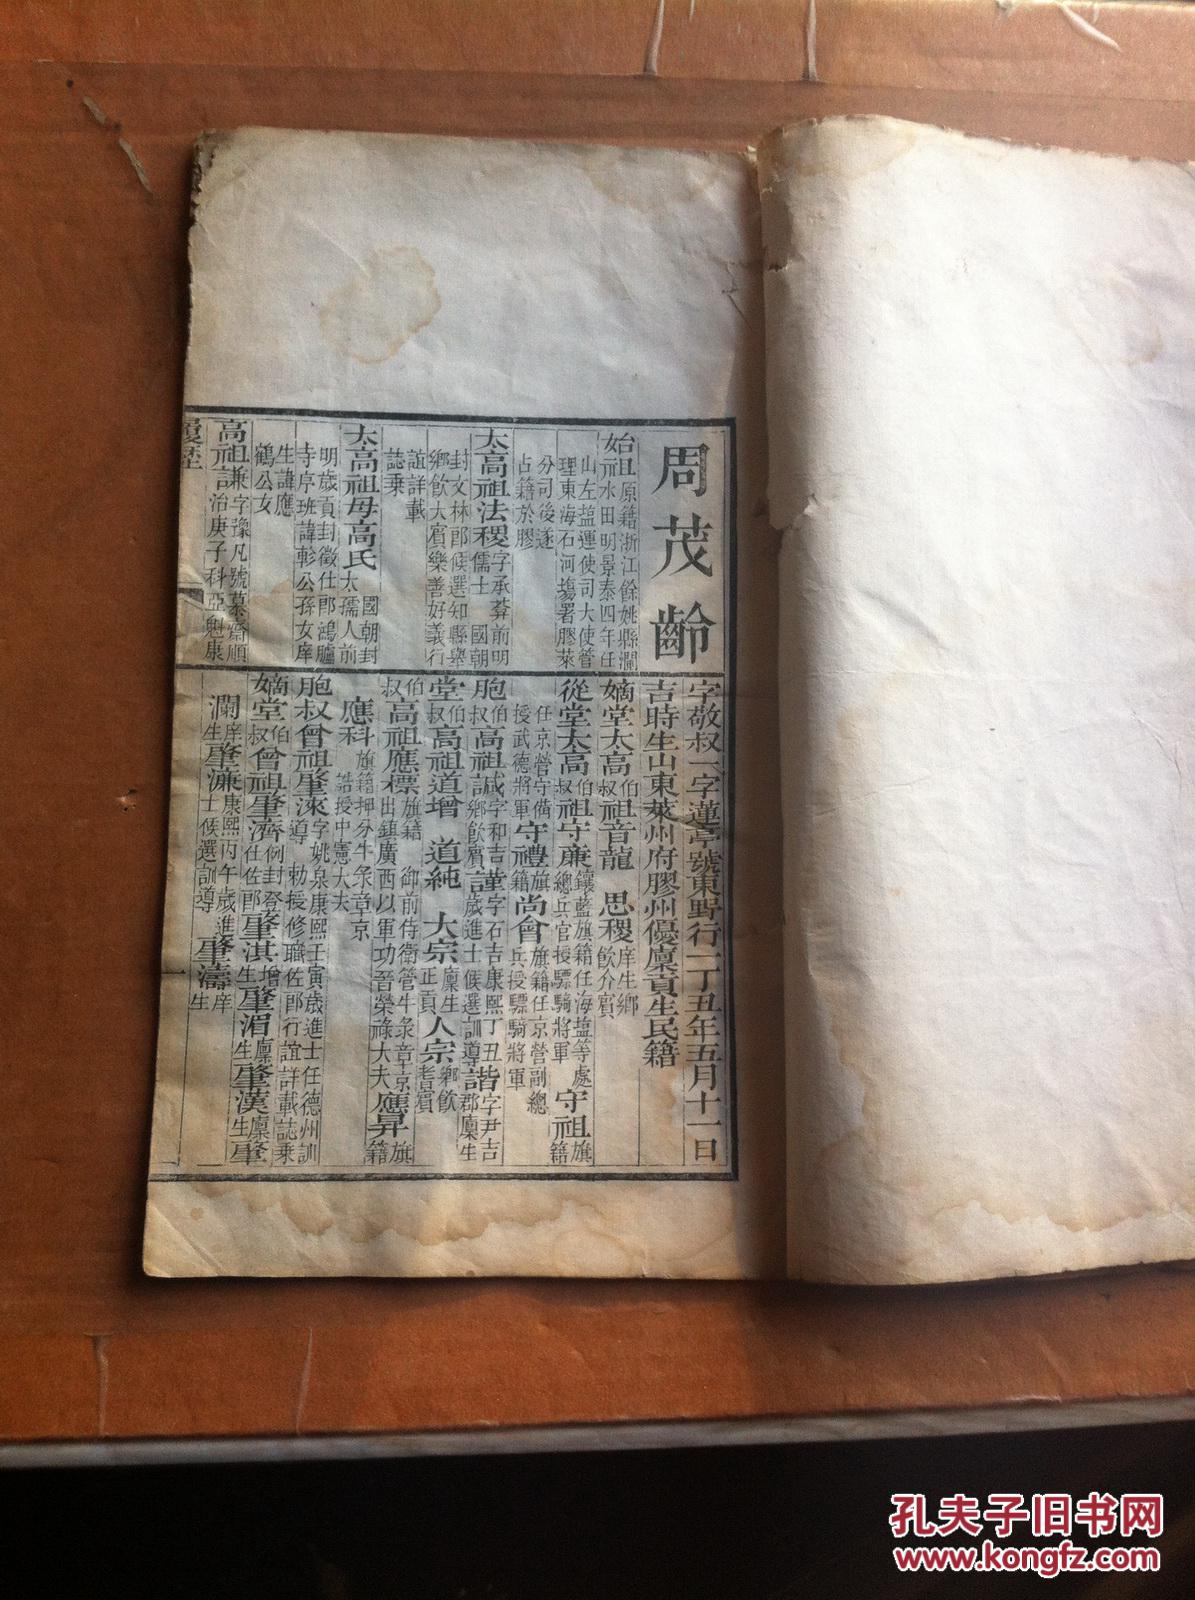 周茂齡
字敬叔一字蓮亭號東野行一丁丑年五月十一日
吉時生山東萊州府膠州優廩貢生民籍
始祖原籍浙江餘姚縣瀾
水田明景泰四年任
山左塩運使司大使管
理東海石河塲署膠萊
分司後遂
占籍於膠
太高祖法稷字承葊前明
儒士 國朝
封文林郎候選知縣舉
鄉飲大賓樂善好義行
誼詳載
誌乗
太高祖母高氏 國朝封
太孺人前
明歲貢封徵仕郎鴻臚
寺序班諱彰公孫女庠
生諱應
鶴公女
高祖謙字豫凡號慕齋順
治庚子科亞魁康
嫡堂太高伯叔祖音龍 思稷庠生鄉飲介賓
從堂太高伯叔祖守亷鑲藍旗籍任海塩等處總兵官授驃騎將軍 守祖旗籍
任京營守備授武德將軍 守禮旗籍 尚會旗籍任京營副總兵授驃騎將軍
胞伯叔高祖諴字和吉鄉飲賓 謹字石吉康熙丁丑歲進士候選訓導 諧字尹吉郡廩生
堂伯叔高祖道增 道純 大宗廩生正貢 人宗鄉飲耆賓
伯叔高祖應標旗籍 御前侍衛管牛彔章京出鎮廣西以軍功晉榮祿大夫 應昇旗籍
應科旗籍押分牛彔章京誥授中憲大夫
胞叔曾祖肇淶字姚泉康熙壬寅歲進士任德州訓導 勅授修職佐郎行誼詳載誌乗
嫡堂伯叔曾祖肇濟例封登仕佐郎 肇淇增生 肇湄廩生 肇漢廩生 肇
瀾庠生 肇濂康熙丙午歲進士候選訓導 肇濤庠生
履歷
孔夫子旧书网
www.kongfz.com